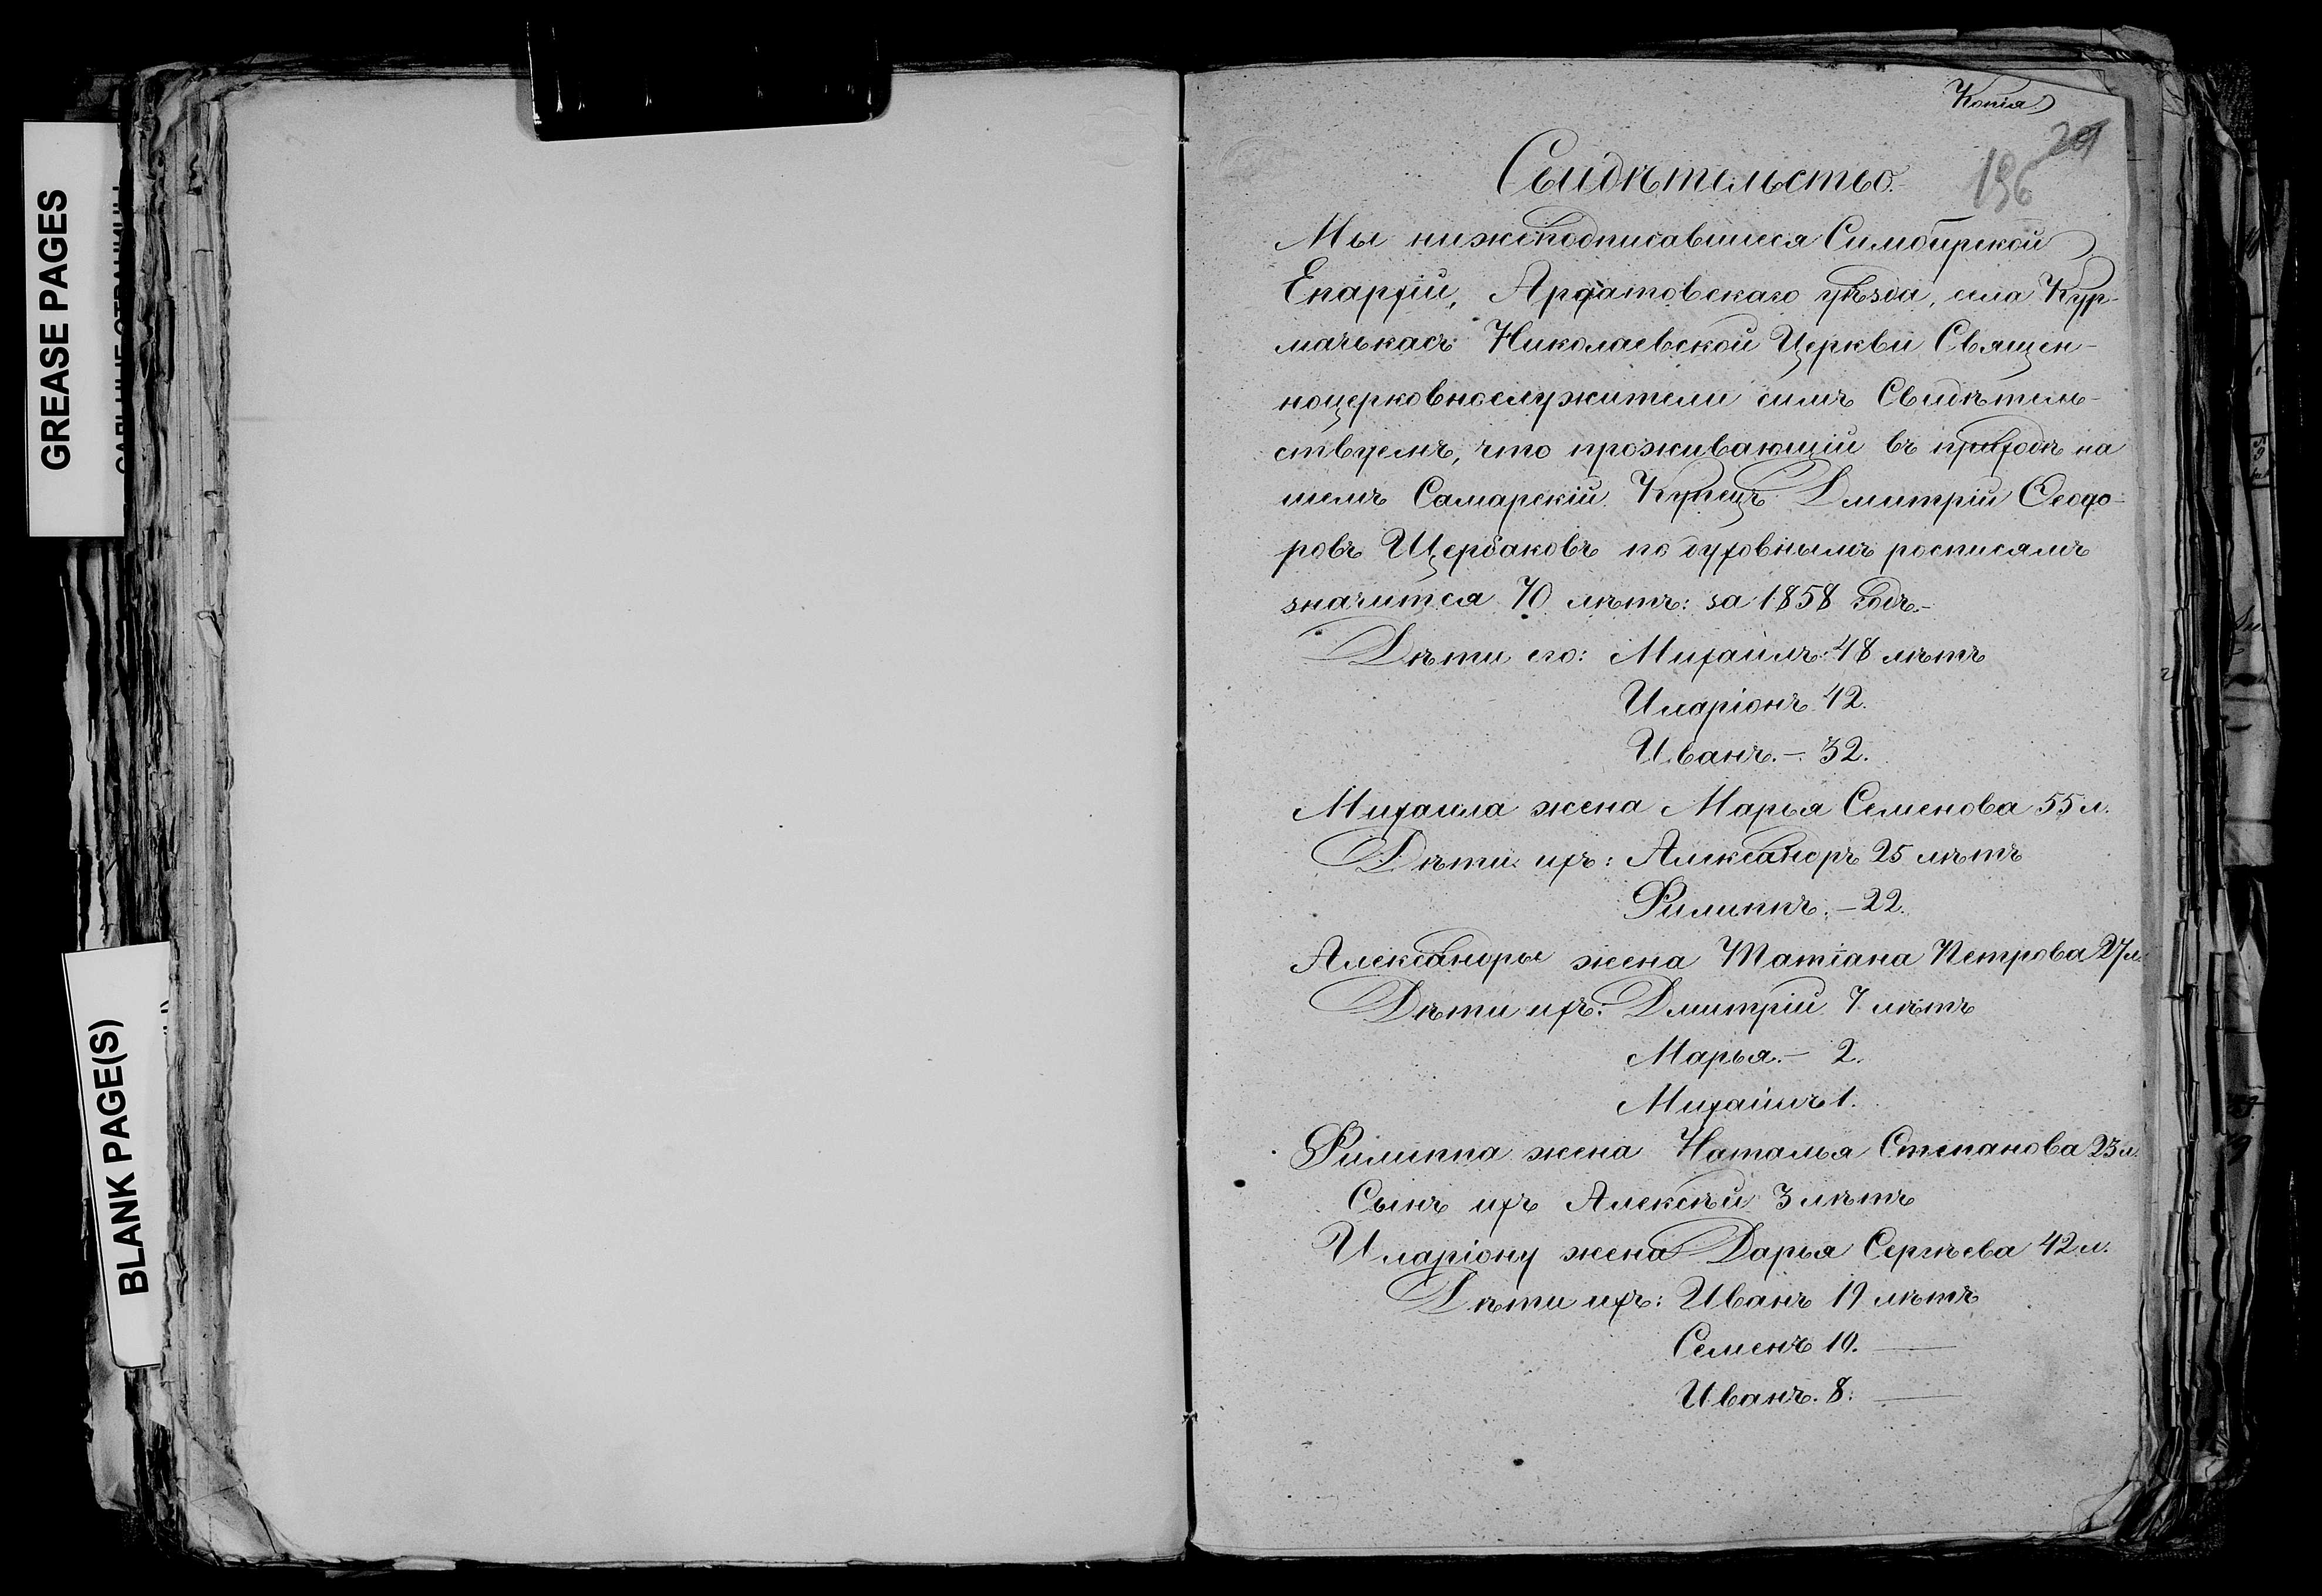 GREASE PAGES
BLANK PAGE(S)
Копія
29
196
Свидѣтельство.
Мы нижеподписавшиеся Симбирской
Епархіи, Ардатовскаго уѣзда, села Кур-
мачькасъ Николаевской Церкви Священ-
ноцерковнослужители симъ Свидѣтель-
ствуемъ, что проживающій въ приходѣ на
шемъ Самарскій Купецъ Дмитрій Ѳеодо-
ровъ Щербаковъ по духовнымъ росписямъ
значится 70 лѣтъ: за 1858 годъ.-
Дѣти его: Михаилъ 48 лѣтъ
Иларіонъ 42.
Иванъ.- 32.
Михаила жена Марья Семенова 55 л.
Дѣти ихъ: Александръ 25 лѣтъ
Филиппъ.- 22.
Александры жена Татіана Петрова 27 л.
Дѣти ихъ: Дмитрій 7 лѣтъ
Марья.- 2.
Михаилъ 1.
Филиппа жена Наталья Степанова 23 л.
Сынъ ихъ Алексѣй 3 лѣтъ
Иларіону жена Дарья Сергѣева 42 л.
Дѣти ихъ: Иванъ 19 лѣтъ
Семенъ 10. —
Иванъ. 8. —